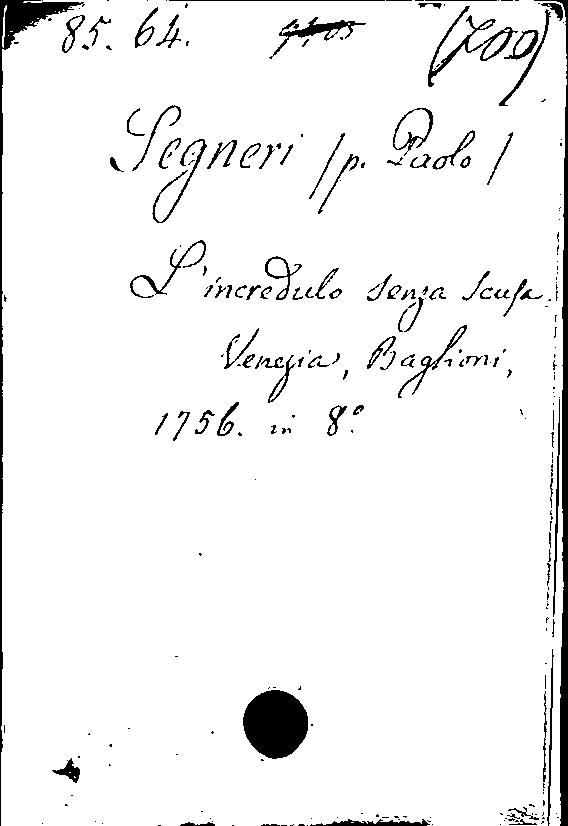 85. 64. (700)
Segneri /p. Paolo/
L'incredulo senza scusa.
Venezia, Baglioni,
1756. in 8º.